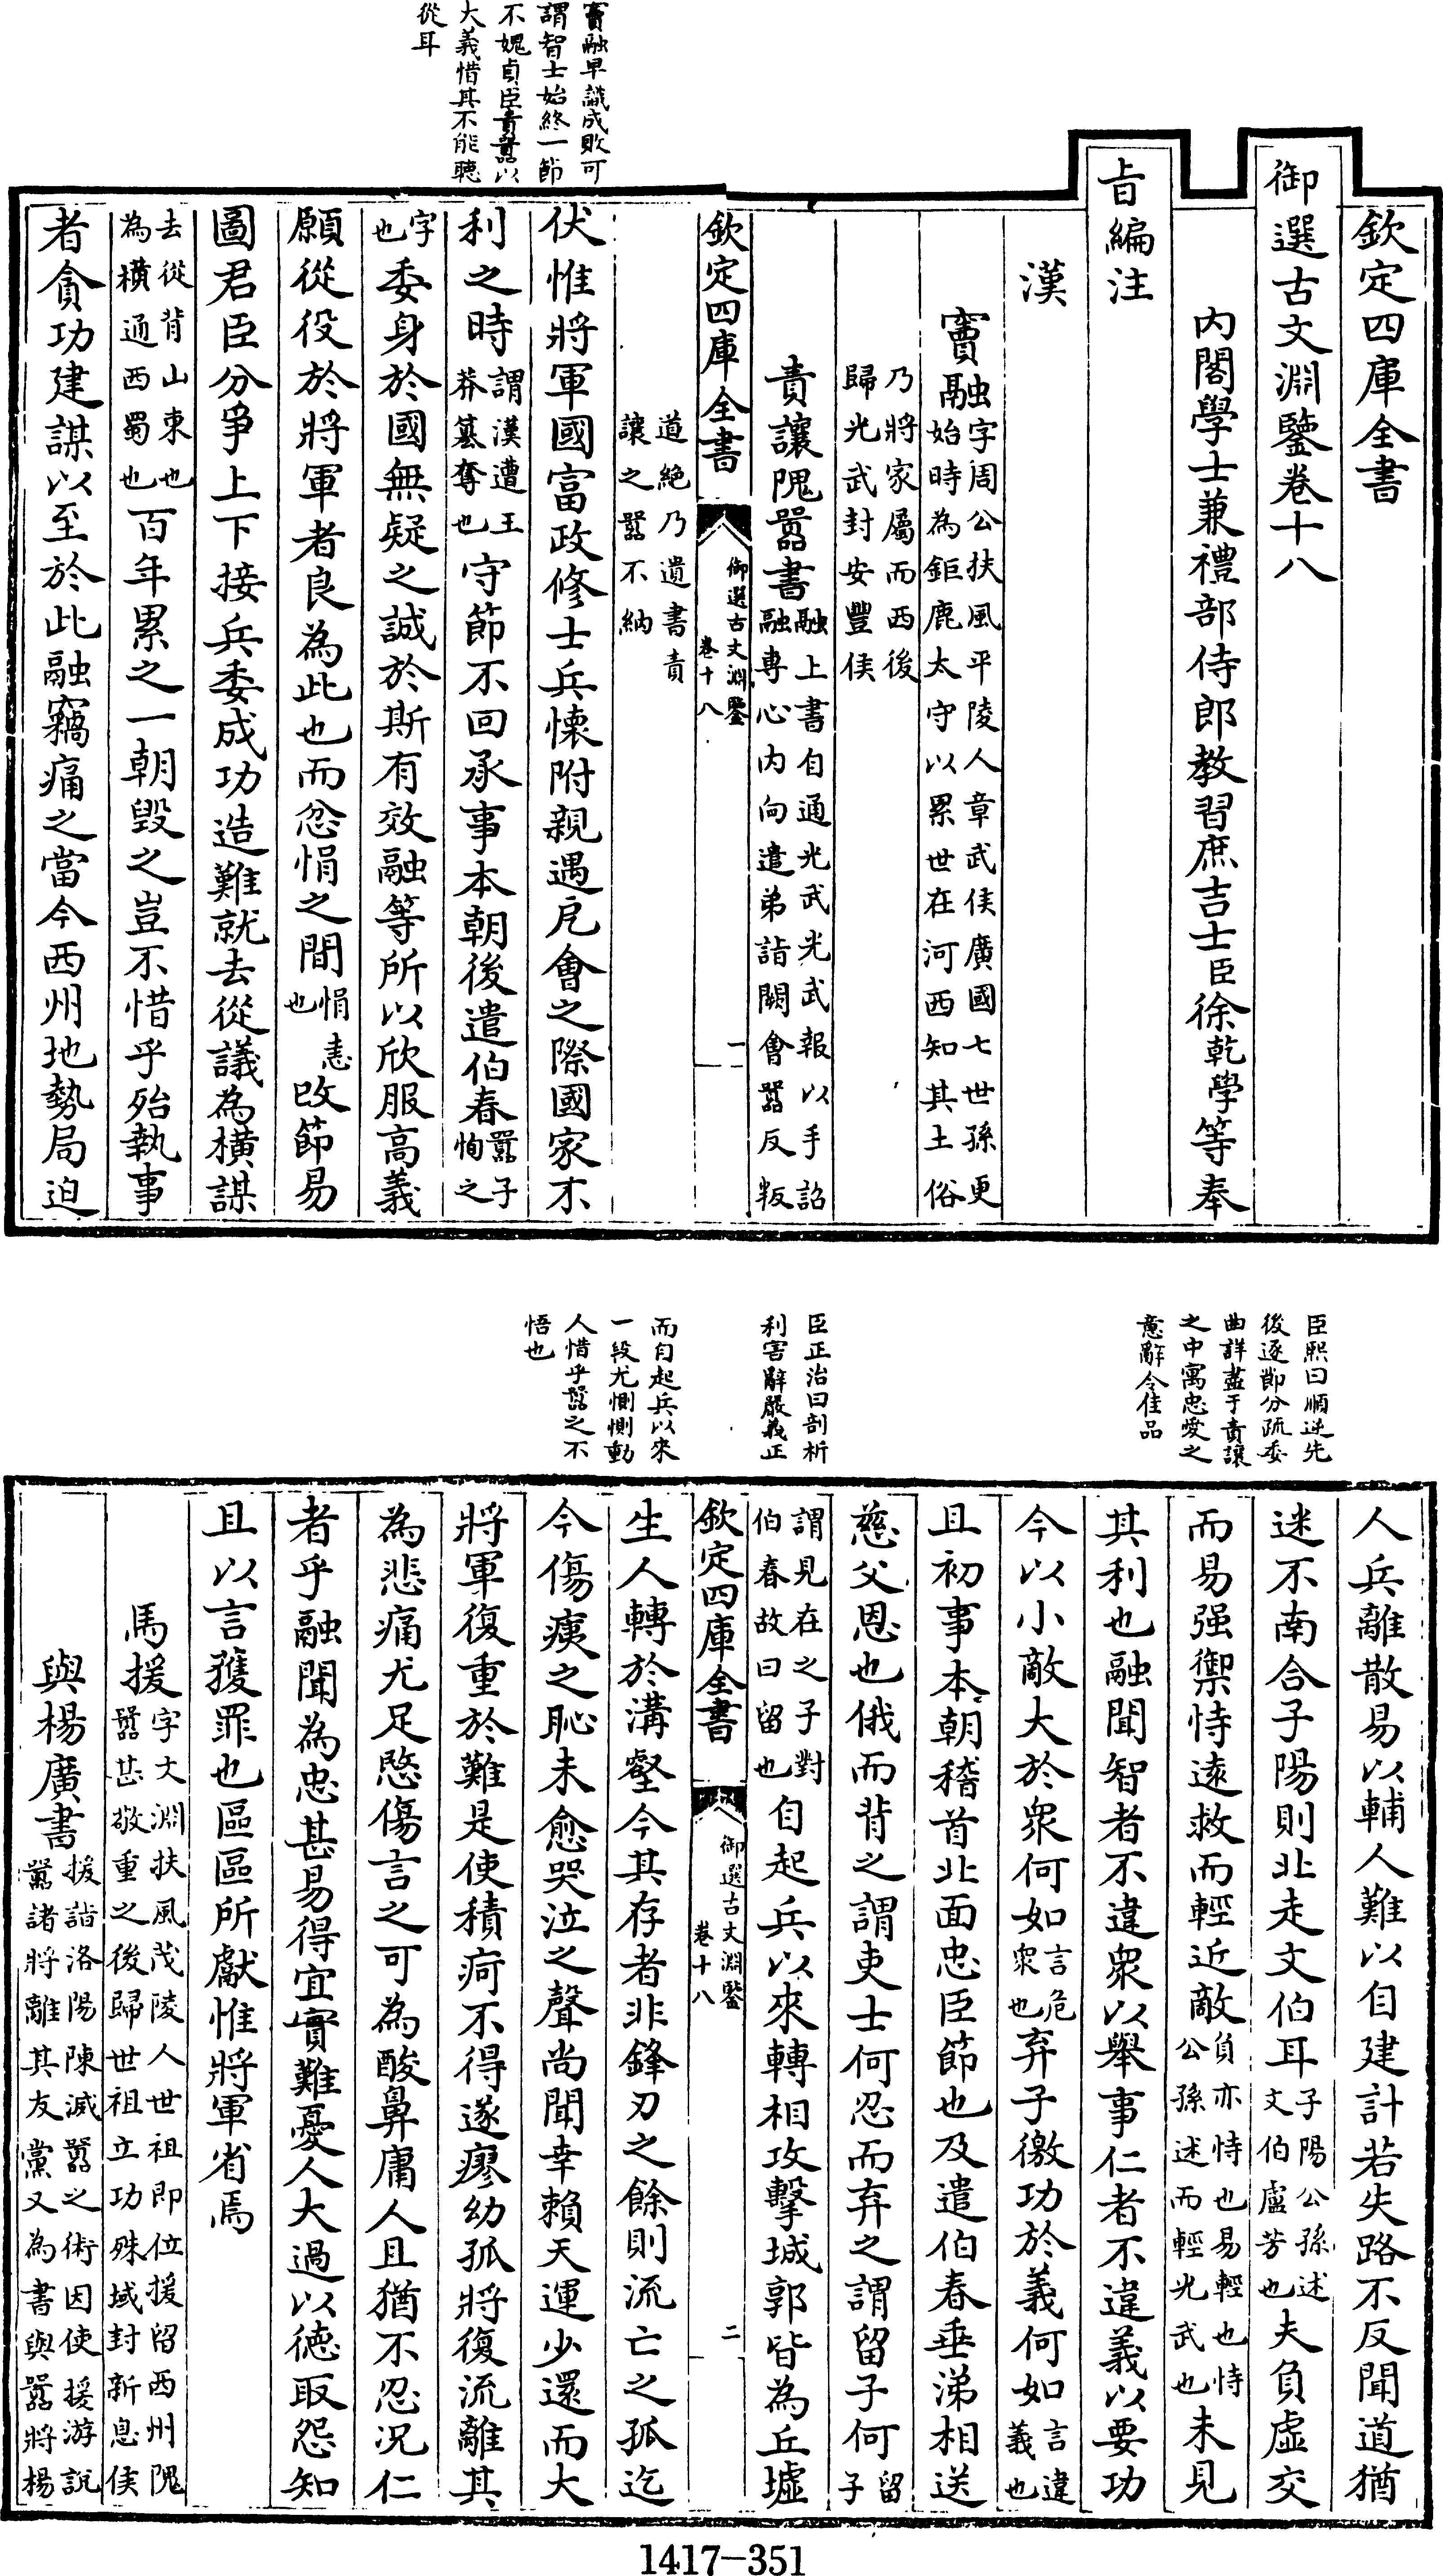 竇融早識成敗可
謂智士始終一節
不媿貞臣責囂以
大義惜其不能聽
從耳
欽定四庫全書
御選古文淵鑒卷十八
內閣學士兼禮部侍郎教習庶吉士臣徐乾學等奉
旨編注
漢
竇融字周公扶風平陵人章武侯廣國七世孫更
始時為鉅鹿太守以累世在河西知其土俗
乃將家屬而西後
歸光武封安豐侯
責讓隗囂書融上書自通光武光武報以手詔
融專心內向遣弟詣闕會囂反叛
欽定四庫全書
御選古文淵鑒
卷十八
一
道絕乃遺書責
讓之囂不納
伏惟將軍國富政修士兵懷附親遇戹會之際國家不
利之時謂漢遭王
莽篡奪也守節不回承事本朝後遣伯春囂子
恂之
字
也委身於國無疑之誠於斯有效融等所以欣服高義
願從役於將軍者良為此也而忿悁之間悁恚
也改節易
圖君臣分爭上下接兵委成功造難就去從議為橫謀
去從背山東也
為橫通西蜀也百年累之一朝毀之豈不惜乎殆執事
者貪功建謀以至於此融竊痛之當今西州地勢局迫
臣熙曰順逆先
後逐節分疏委
曲詳盡于責讓
之中寓忠愛之
意辭令佳品
臣正治曰剖析
利害辭嚴義正
而自起兵以來
一段尤惻惻動
人惜乎囂之不
悟也
人兵離散易以輔人難以自建計若失路不反聞道猶
迷不南合子陽則北走文伯耳子陽公孫述
文伯盧芳也夫負虛交
而易强禦恃遠救而輕近敵負亦恃也易輕也恃
公孫述而輕光武也未見
其利也融聞智者不違衆以舉事仁者不違義以要功
今以小敵大於衆何如言危
衆也弃子徼功於義何如言違
義也
且初事本朝稽首北面忠臣節也及遣伯春垂涕相送
慈父恩也俄而背之謂吏士何忍而弃之謂留子何留
子
謂見在之子對
伯春故曰留也自起兵以來轉相攻擊城郭皆為丘墟
欽定四庫全書
御選古文淵鑒
卷十八
二
生人轉於溝壑今其存者非鋒刃之餘則流亡之孤迄
今傷痍之恥未愈哭泣之聲尚聞幸賴天運少還而大
將軍復重於難是使積痾不得遂瘳幼孤將復流離其
為悲痛尤足愍傷言之可為酸鼻庸人且猶不忍況仁
者乎融聞為忠甚易得宜實難憂人大過以德取怨知
且以言獲罪也區區所獻惟將軍省焉
馬援字文淵扶風茂陵人世祖即位援留西州隗
囂甚敬重之後歸世祖立功殊域封新息侯
與楊廣書援詣洛陽陳滅囂之術因使援游說
囂諸將離其友黨又為書與囂將楊
1417-351